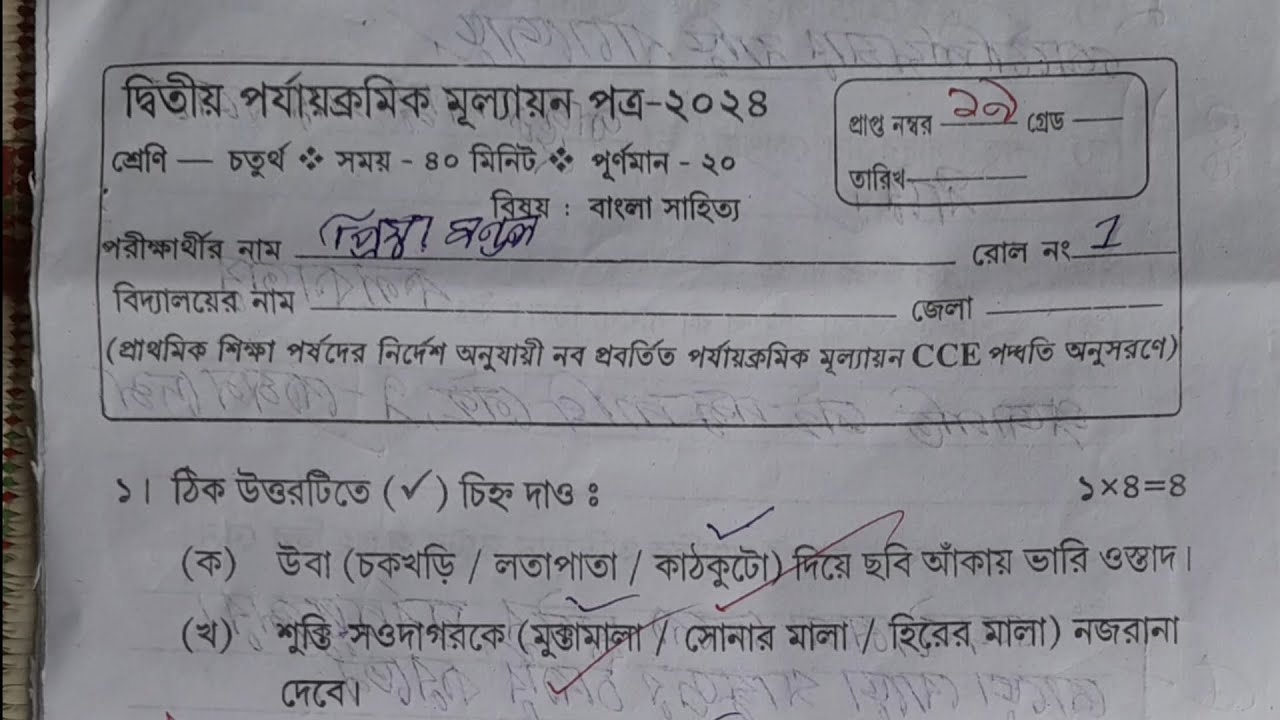 দ্বিতীয় পর্যায়ক্রমিক মূল্যায়ন পত্র-২০২৪
প্রাপ্ত নম্বর ১৯ গ্রেড
শ্রেণি — চতুর্থ ❖ সময় - ৪০ মিনিট ❖ পূর্ণমান - ২০
তারিখ
বিষয় : বাংলা সাহিত্য
পরীক্ষার্থীর নাম মণ্ডল রোল নং 1
বিদ্যালয়ের নাম জেলা
(প্রাথমিক শিক্ষা পর্ষদের নির্দেশ অনুযায়ী নব প্রবর্তিত পর্যায়ক্রমিক মূল্যায়ন CCE পদ্ধতি অনুসরণে)
১। ঠিক উত্তরটিতে (✓) চিহ্ন দাও ঃ ১×৪=৪
(ক) উবা (চকখড়ি / লতাপাতা / কাঠকুটো) দিয়ে ছবি আঁকায় ভারি ওস্তাদ।
(খ) শূক্তি সওদাগরকে (মুক্তামালা / সোনার মালা / হিরের মালা) নজরানা
দেবে।